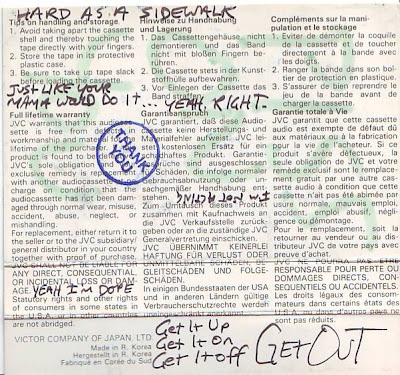 HARD AS A SIDEWALK
Tips on handling and storage
1. Avoid taking apart the cassette
shell and thereby touching the
tape directly with your fingers.
2. Store the tape in its protective
plastic case.
3. Be sure to take up tape slack
before loading the cassette.
JUST LIKE YOUR
MAMA WOULD DO IT... YEAH, RIGHT.
Full lifetime warranty
JVC warrants that this audiocas-
sette is free from defects in
workmanship and materials for the
lifetime of the product. If the
product is found to be defective,
JVC's sole obligation and your
exclusive remedy is replacement
with another audiocassette free of
charge on condition that the
audiocassette has not been dam-
aged through normal wear, misuse,
accident, abuse, neglect, or
mishandling.
For replacement, either return it to
the seller or to the JVC subsidiary/
general distributor in your country
together with proof of purchase.
JVC SHALL NOT BE LIABLE FOR
ANY DIRECT, CONSEQUENTIAL,
OR INCIDENTAL LOSS OR DAM-
AGE.
YEAH I'M DOPE
Statutory rights and other rights
of consumers in some states in
the U.S.A. or in other countries
are not abridged.
VICTOR COMPANY OF JAPAN, LTD.
Made in R. Korea
Hergestellt in R. Korea
Fabriqué en Corée du Sud
Hinweise zu Handhabung
und Lagerung
1. Das Cassettengehäuse nicht
demontieren und das Band
nicht mit bloßen Fingern be-
rühren.
2. Die Cassette stets in der Kunst-
stoffhülle aufbewahren.
3. Vor Einlegen der Cassette das
Band straffen.
Garantieanspruch
JVC garantiert, daß diese Audio-
cassette keine Herstellungs- und
Materialfehler aufweist. JVC lei-
stet kostenlosen Ersatz für ein
defektes Produkt. Garantie-
ansprüche sind ausgeschlossen
bei Schäden, die infolge normaler
Beanspruchung oder un-
sachgemäßer Handhabung ent-
stehen.
I'M NOT ACTING
Zum Umtausch dieses Produkt
zusammen mit Kaufnachweis an
die JVC Verkaufsstelle zurück-
geben oder an die zuständige JVC
Generalvertretung einschicken.
JVC ÜBERNIMMT KEINERLEI
HAFTUNG FÜR VERLUST ODER
UNMITTELBARE SCHÄDEN, BE-
GLEITSCHÄDEN UND FOLGE-
SCHÄDEN.
In einigen Bundesstaaten der USA
und in anderen Ländern gültige
Verbraucherschutzrechte werden
hiervon uneingeschränkt anerkannt.
THANK YOU
Compléments sur la mani-
pulation et le stockage
1. Eviter de démonter la coquille
de la cassette et de toucher
directement à la bande avec
les doigts.
2. Ranger la bande dans son boî-
tier de protection en plastique.
3. S'assurer de bien reprendre le
jeu de la bande avant de
charger la cassette.
Garantie totale à Vie
JVC garantit que cette cassette
audio est exempte de défaut dû
aux matériaux ou à la fabrication
pour la vie de l'acheteur. Si ce
produit s'avère défectueux, la
seule obligation de JVC et votre
remède exclusif sont le remplace-
ment gratuit par une autre cas-
sette audio à condition que cette
cassette n'ait pas été abimée par
usure normale, mauvais emploi,
accident, emploi abusif, négli-
gence ou démontage.
Pour le remplacement, soit la
retourner au vendeur ou au dis-
tributeur JVC de votre pays avec
preuve d'achat.
JVC NE POURRA PAS ETRE
RESPONSABLE POUR PERTE OU
DOMMAGES DIRECTS, CON-
SEQUENTIELS OU ACCIDENTELS.
Les droits légaux des consom-
mateurs dans certains états des
U.S.A. ou dans d'autres pays ne
sont pas réduits.
Get It Up
Get It On
Get It Off
GET OUT